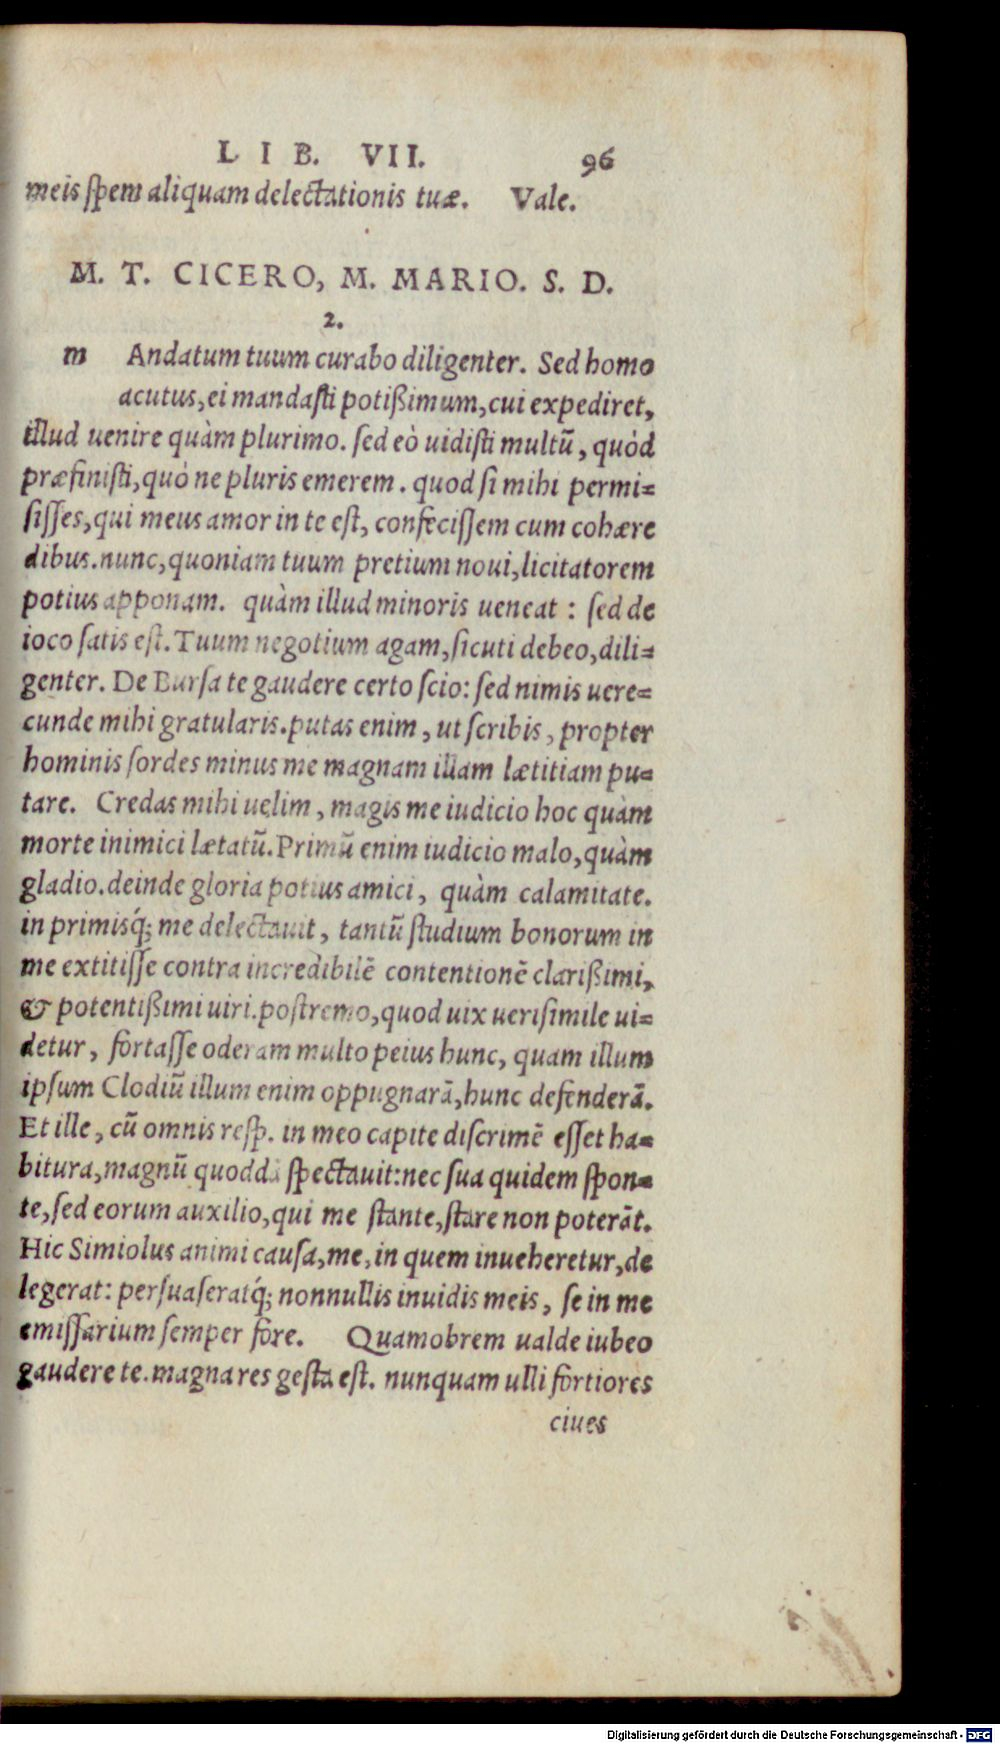 LIB. VII. 96
meis spem aliquam delectationis tuæ. Vale.
M. T. CICERO, M. MARIO. S. D.
2.
m Andatum tuum curabo diligenter. Sed homo
acutus, ei mandasti potißimum, cui expediret,
illud uenire quàm plurimo. sed eò uidisti multũ, quòd
præfinisti, quò ne pluris emerem. quod si mihi permi=
sisses, qui meus amor in te est, confecissem cum cohære
dibus. nunc, quoniam tuum pretium noui, licitatorem
potius apponam. quàm illud minoris ueneat: sed de
ioco satis est. Tuum negotium agam, sicuti debeo, dili=
genter. De Bursa te gaudere certo scio: sed nimis uere=
cunde mihi gratularis. putas enim, ut scribis, propter
hominis sordes minus me magnam illam lætitiam pu=
tare. Credas mihi uelim, magis me iudicio hoc quàm
morte inimici lætatũ. Primũ enim iudicio malo, quàm
gladio. deinde gloria potius amici, quàm calamitate.
in primisq́; me delectauit, tantũ studium bonorum in
me extitisse contra incredibilẽ contentionẽ clarißimi,
& potentißimi uiri. postremo, quod uix uerisimile ui=
detur, fortasse oderam multo peius hunc, quam illum
ipsum Clodiũ illum enim oppugnarã, hunc defenderã.
Et ille, cũ omnis resp. in meo capite discrimẽ esset ha=
bitura, magnũ quoddã spectauit: nec sua quidem spon=
te, sed eorum auxilio, qui me stante, stare non poterãt.
Hic Simiolus animi causa, me, in quem inueheretur, de
legerat: persuaseratq́; nonnullis inuidis meis, se in me
emissarium semper fore. Quamobrem ualde iubeo
gaudere te. magna res gesta est. nunquam ulli fortiores
ciues
Digitalisierung gefördert durch die Deutsche Forschungsgemeinschaft - DFG